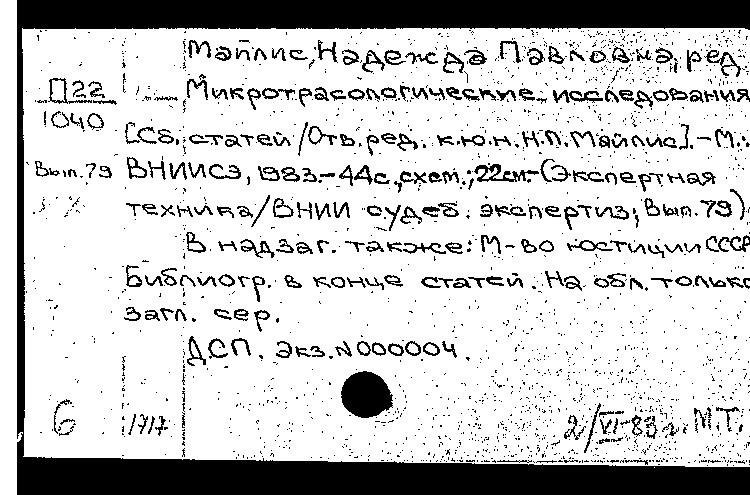 Майлис, Надежда Павловна, ред.
П22
1040
Микротрасологические исследования
[Сб. статей / Отв. ред. к.ю.н. Н.П. Майлис]. - М.:
Вып. 79
ВНИИСЭ, 1983. - 44 с., схем.; 22 см. - (Экспертная
техника / ВНИИ судеб. экспертиз; Вып. 79)
В надзаг. также: М-во юстиции СССР
Библиогр. в конце статей. На обл. только
загл. сер.
ДСП. Экз. N000004.
6
1717
2/VI-83 г. М.Т.